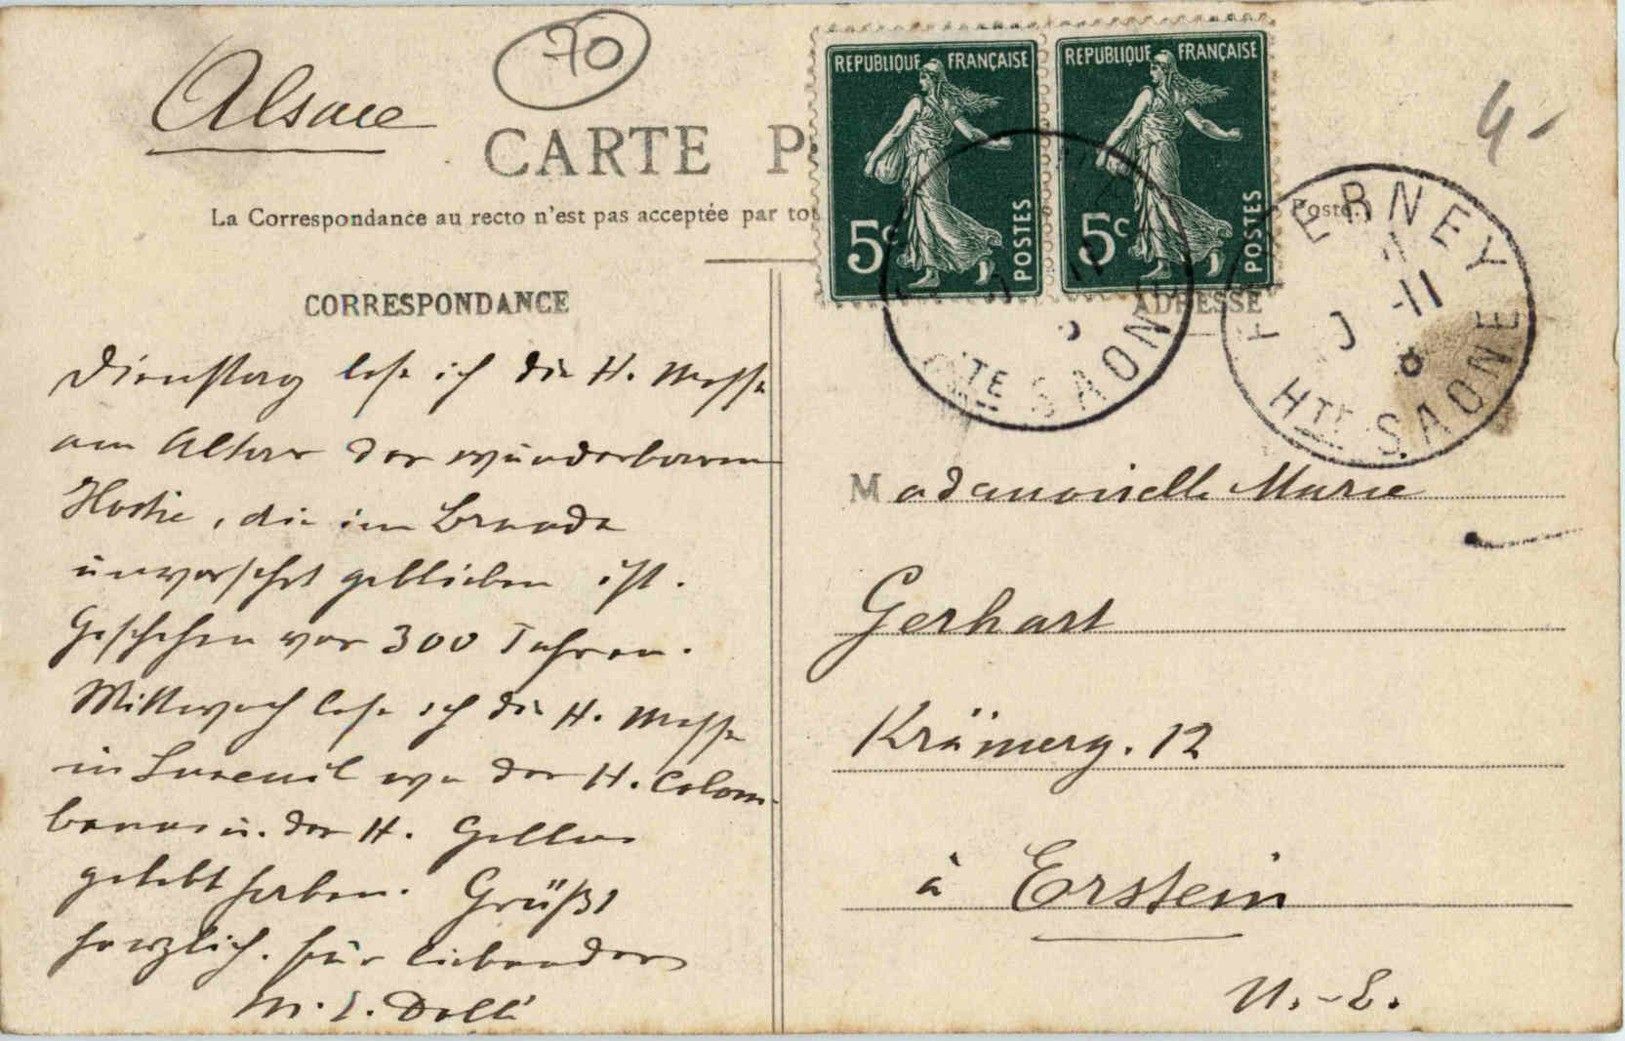 Alsace
70
4-
CARTE P
La Correspondance au recto n'est pas acceptée par tou
Poste.
REPUBLIQUE FRANÇAISE
5c
POSTES
REPUBLIQUE FRANÇAISE
5c
POSTES
HTE SAONE
FERNEY
-11
HTE SAONE
CORRESPONDANCE
Dienstag lese ich die H. Messe
am Altar der wunderbaren
Hostie, die im Brande
unversehrt geblieben ist.
Geschehen vor 300 Jahren.
Mittwoch lese ich die H. Messe
in Luxeuil wo der H. Colom-
banus u. der H. Gallus
gelebt haben. Grüßt
herzlich. Eur liebender
ADRESSE
Mademoiselle Marie
Gerhart
Krämerg. 12
à Erstein
U.-E.